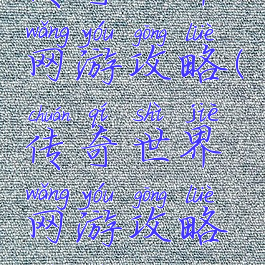 wǎng yóu gōng lüè
网游攻略(
chuán qí shì jiè
传奇世界
wǎng yóu gōng lüè
网游攻略